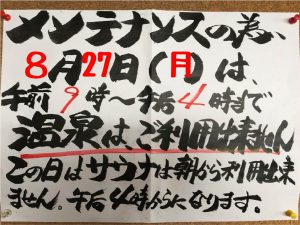 メンテナンスの為、
8月27日(月)は、
午前9時～午后4時まで
温泉は、ご利用出来ません
この日はサウナは朝から利用出来
ません。午后4時からになります。